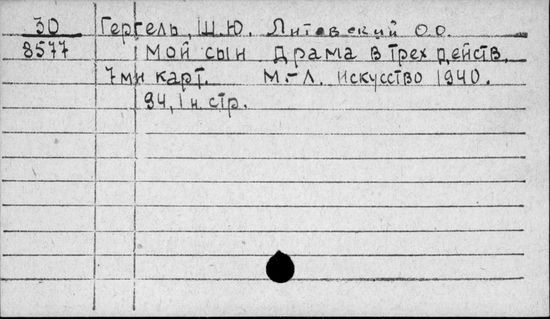 30 Гергель, Ш.Ю. Литовский О.О.
8577 Мой сын Драма в трех действ.
7ми карт. М.-Л. Искусство 1940.
94, 1 н. стр.